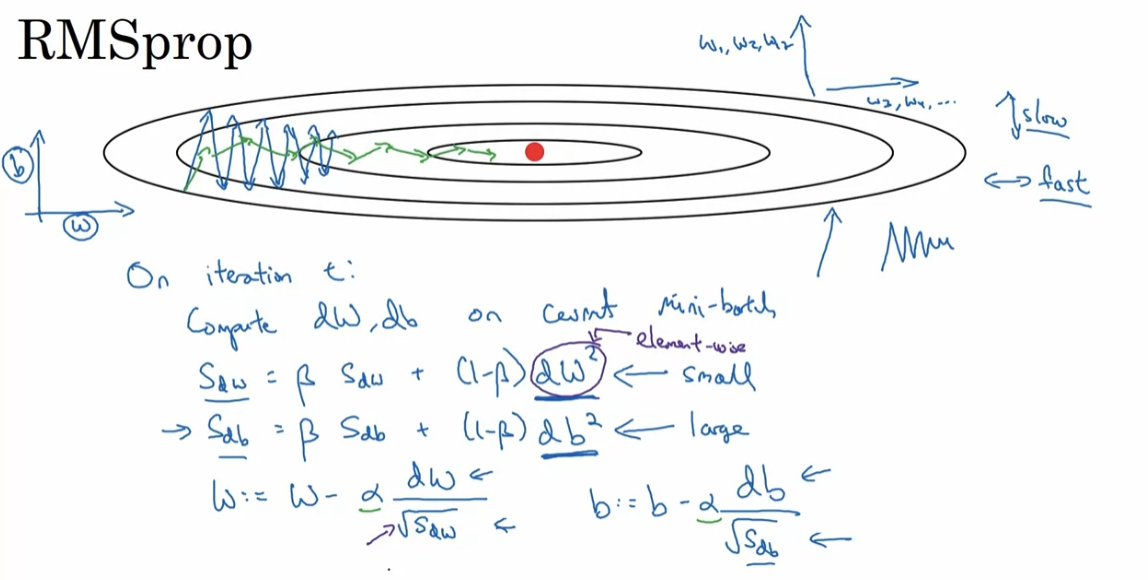 RMSprop
w₁, w₂, w₂
w₃, w₄, ...
↕ slow
↔ fast
b
w
On iteration t:
Compute dW, db on current mini-batch
element-wise
Sdw = β Sdw + (1-β) dW² ← small
→ Sdb = β Sdb + (1-β) db² ← large
W := W - α dW / √Sdw ←
b := b - α db / √Sdb ←